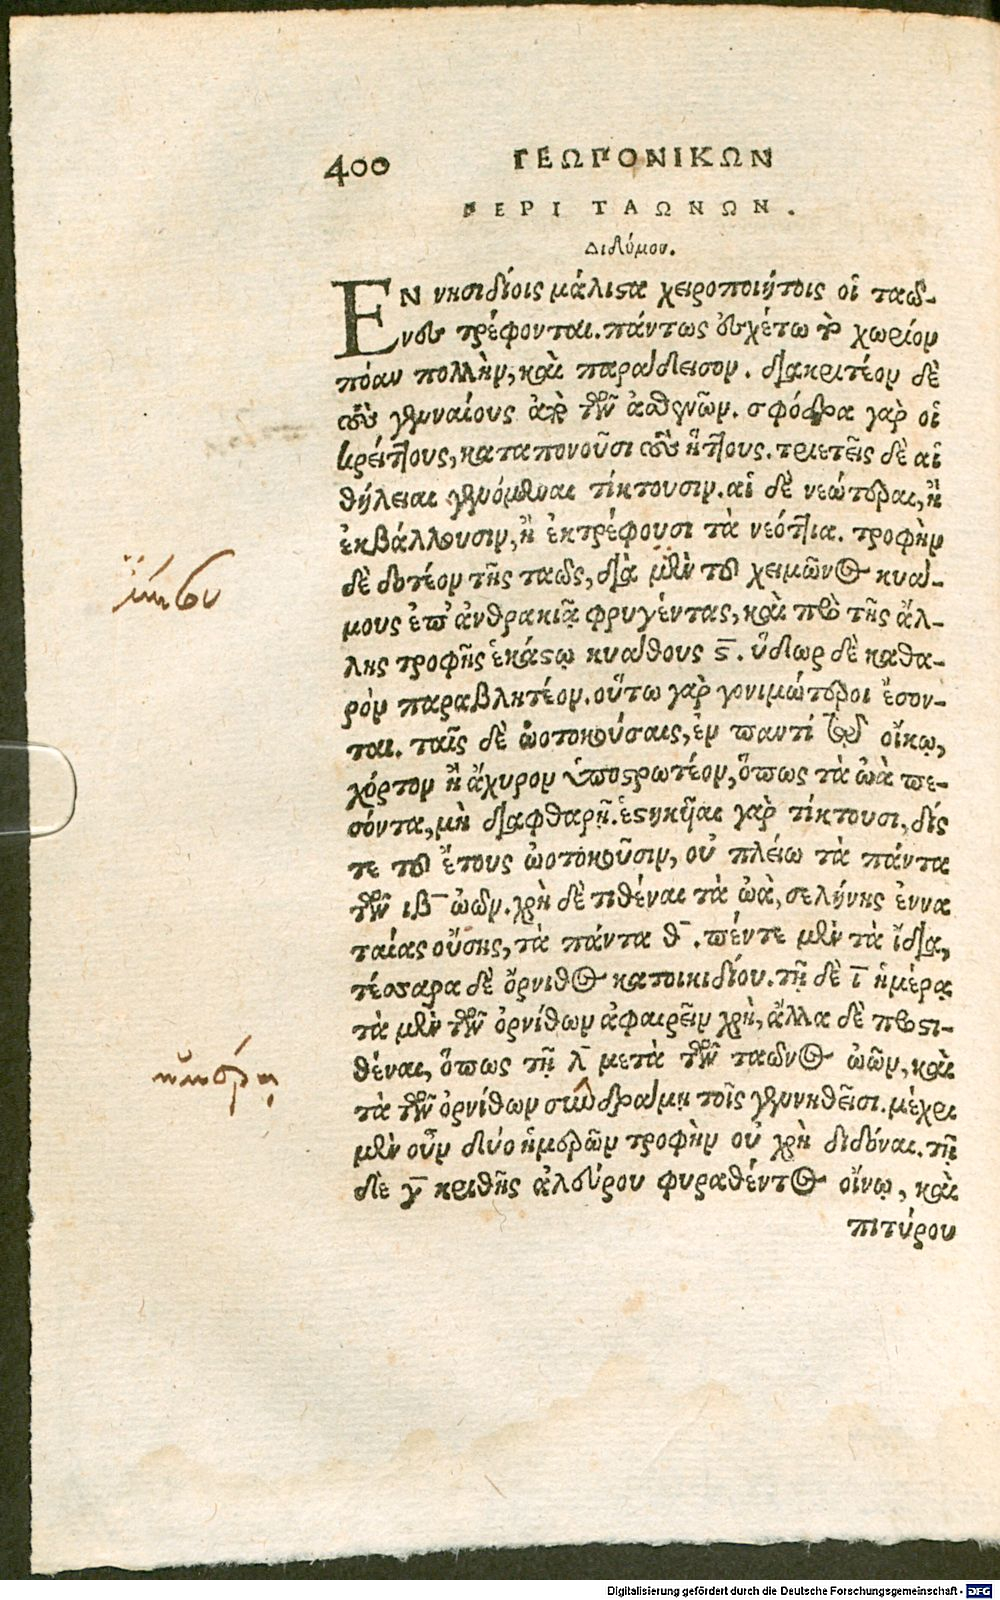 400 ΓΕΩΠΟΝΙΚΩΝ
ΠΕΡΙ ΤΑΩΝΩΝ.
Διδύμου.
ΕΝ νησιδίοις μάλιστα χειροποιήτοις οἱ ταῶ-
νες τρέφονται. πάντως δὲ ἐχέτω τὸ χωρίον
πόαν πολλὴν, καὶ παράδεισον. διακριτέον δὲ
τοὺς γενναίους ἀπὸ τῶν ἀσθενῶν. σφόδρα γὰρ οἱ
κρείττους, καταπονοῦσι τοὺς ἥττους. τριετεῖς δὲ αἱ
θήλειαι γενόμεναι τίκτουσιν. αἱ δὲ νεώτεραι, ἢ
ἐκβάλλουσιν, ἢ ἐκτρέφουσι τὰ νεόττια. τροφὴν
δὲ δοτέον τῆς ταῶς, διὰ μὲν τοῦ χειμῶνος κυά-
μους ἐπ' ἀνθρακιᾷ φρυγέντας, καὶ πρὸ τῆς ἄλ-
λης τροφῆς ἑκάστῳ κυάθους ϛ. ὕδωρ δὲ καθα-
ρὸν παραβλητέον. οὕτω γὰρ γονιμώτεροι ἔσον-
ται. ταῖς δὲ ὠοτοκούσαις, ἐν παντὶ τῷ οἴκῳ,
χόρτον ἢ ἄχυρον ὑποστρωτέον, ὅπως τὰ ὠὰ πε-
σόντα, μὴ διαφθαρῇ. ἑστηκῆαι γὰρ τίκτουσι, δίς
τε τοῦ ἔτους ὠοτοκοῦσιν, οὐ πλείω τὰ πάντα
τῶν ιβ ὠῶν. χρὴ δὲ τιθέναι τὰ ὠὰ, σελήνης ἐννα
ταίας οὔσης, τὰ πάντα θ. πέντε μὲν τὰ ἴδια,
τέσσαρα δὲ ὄρνιθος κατοικιδίου. τῇ δὲ ι ἡμέρᾳ
τὰ μὲν τῶν ὀρνίθων ἀφαιρεῖν χρὴ, ἄλλα δὲ προστι-
θέναι, ὅπως τῇ λ μετὰ τῶν ταῶνος ὠῶν, καὶ
τὰ τῶν ὀρνίθων συνδράμῃ τοῖς γεννηθεῖσι. μέχρι
μὲν οὖν δύο ἡμερῶν τροφὴν οὐ χρὴ διδόναι. τῇ
δὲ γ κριθῆς ἀλεύρου φυραθέντος οἴνῳ, καὶ
πιτύρου